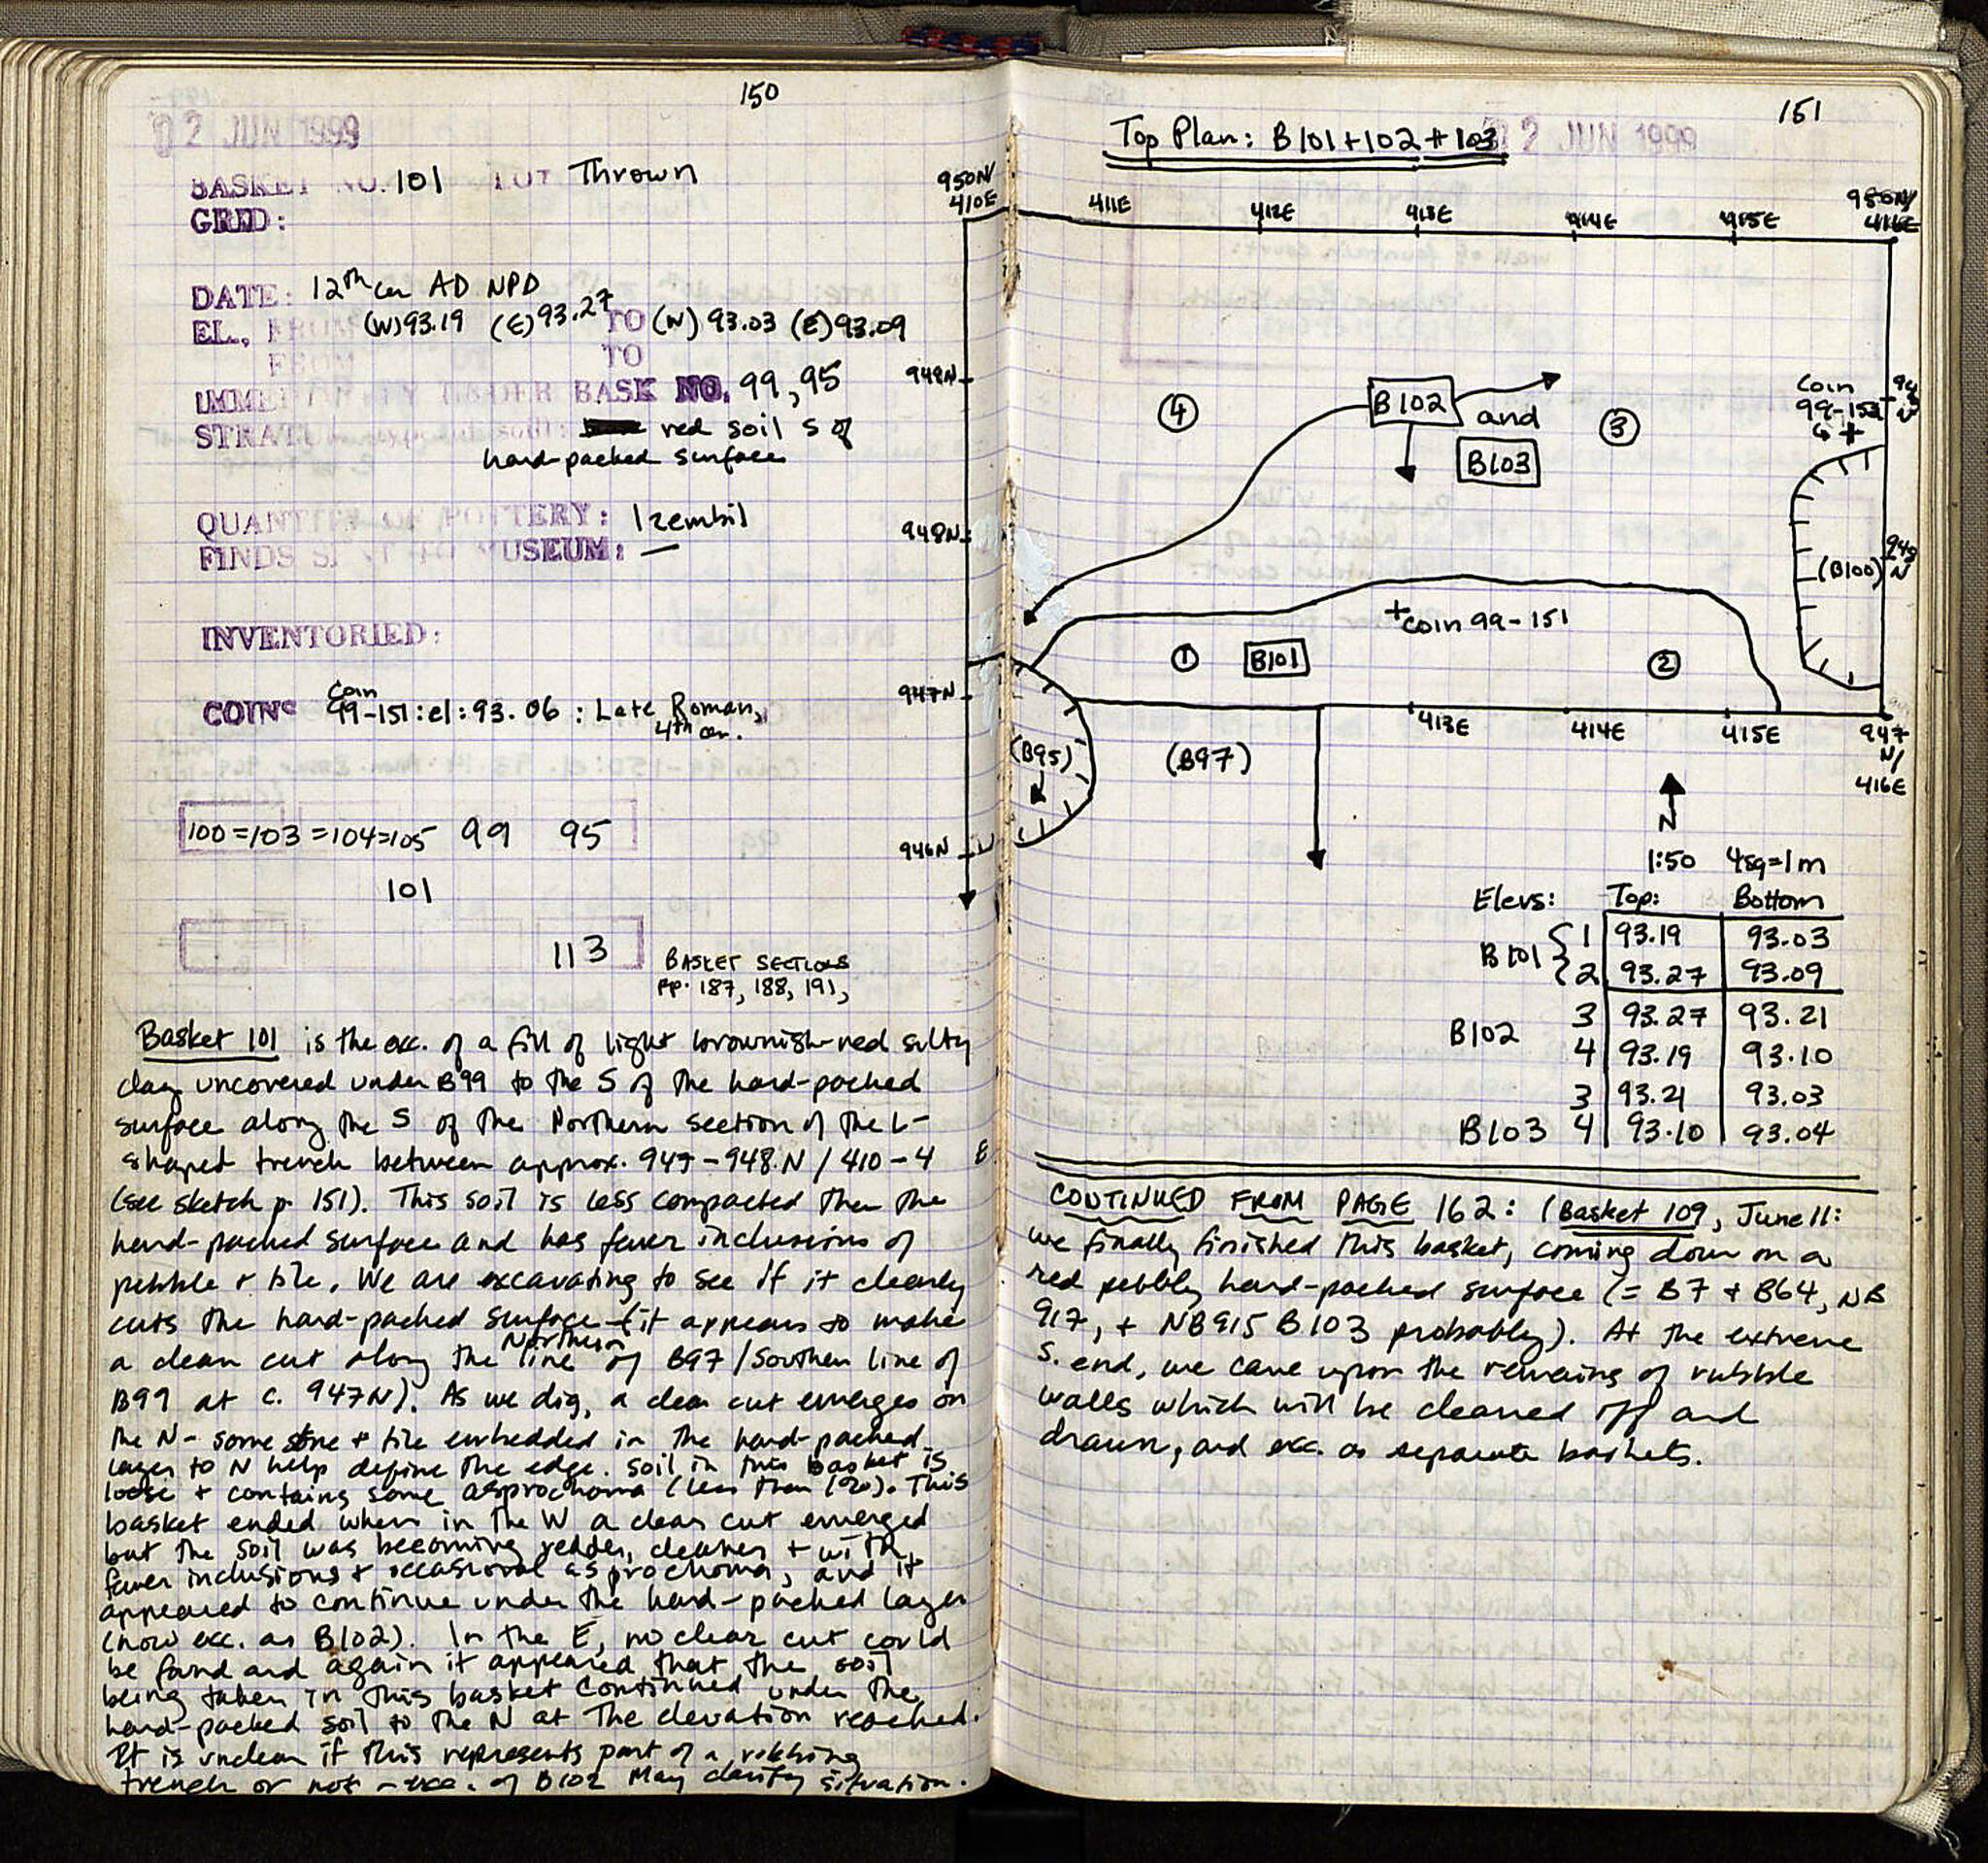 150
02 JUN 1999
BASKET NO. 101 LOT Thrown
GRID:
DATE: 12th cen AD NPD
EL., FROM (W) 93.19 (E) 93.27 TO (W) 93.03 (E) 93.09
FROM TO
IMMEDIATELY UNDER BASK NO. 99, 95
STRAT red soil S of
hard-packed surface
QUANTITY OF POTTERY: 1 zembil
FINDS SENT TO MUSEUM: —
INVENTORIED:
COINS Coin 99-151: el: 93.06 : Late Roman,
4th cen.
100=103=104=105 99 95
101
113
BASKET SECTIONS
pp. 187, 188, 191,
Basket 101 is the exc. of a fill of light brownish-red silty
clay uncovered under B99 to the S of the hard-packed
surface along the S of the Northern section of the L-
shaped trench between approx. 947-948 N / 410-4 E
(see sketch p. 151). This soil is less compacted then the
hard-packed surface and has fewer inclusions of
pebble + tile. We are excavating to see if it clearly
cuts the hard-packed surface (it appears to make
a clean cut along the Northern line of B97/Southern line of
B99 at c. 947N). As we dig, a clear cut emerges on
the N - some stone + tile embedded in the hard-packed
layer to N help define the edge. Soil in this basket is
loose + contains some asprochoma (less than 1%). This
basket ended when in the W a clear cut emerged
but the soil was becoming redder, cleaner + with
fewer inclusions + occasional asprochoma, and it
appeared to continue under the hard-packed layer
(now exc. as B102). In the E, no clear cut could
be found and again it appeared that the soil
being taken in this basket continued under the
hard-packed soil to the N at the elevation reached.
It is unclear if this represents part of a robbing
trench or not - exc. of B102 may clarify situation.
151
02 JUN 1999
Top Plan: B101+102 + 103
950N/
410E
411E
412E
413E
414E
415E
950N/
416E
949N
948N
947N
946N
④
B102
and
B103
③
Coin
99-152
(B100)
949
N
+coin 99-151
①
B101
②
(B95)
(B97)
413E
414E
415E
947
N/
416E
N
1:50 4sq=1m
Elevs: Top: Bottom
B101 1 93.19 93.03
2 93.27 93.09
B102 3 93.27 93.21
4 93.19 93.10
3 93.21 93.03
B103 4 93.10 93.04
CONTINUED FROM PAGE 162: (Basket 109, June 11:
we finally finished this basket, coming down on a
red pebbly hard-packed surface (= B7 + B64, NB
917, + NB915 B103 probably). At the extreme
S. end, we came upon the remains of rubble
walls which will be cleaned off and
drawn, and exc. as separate baskets.